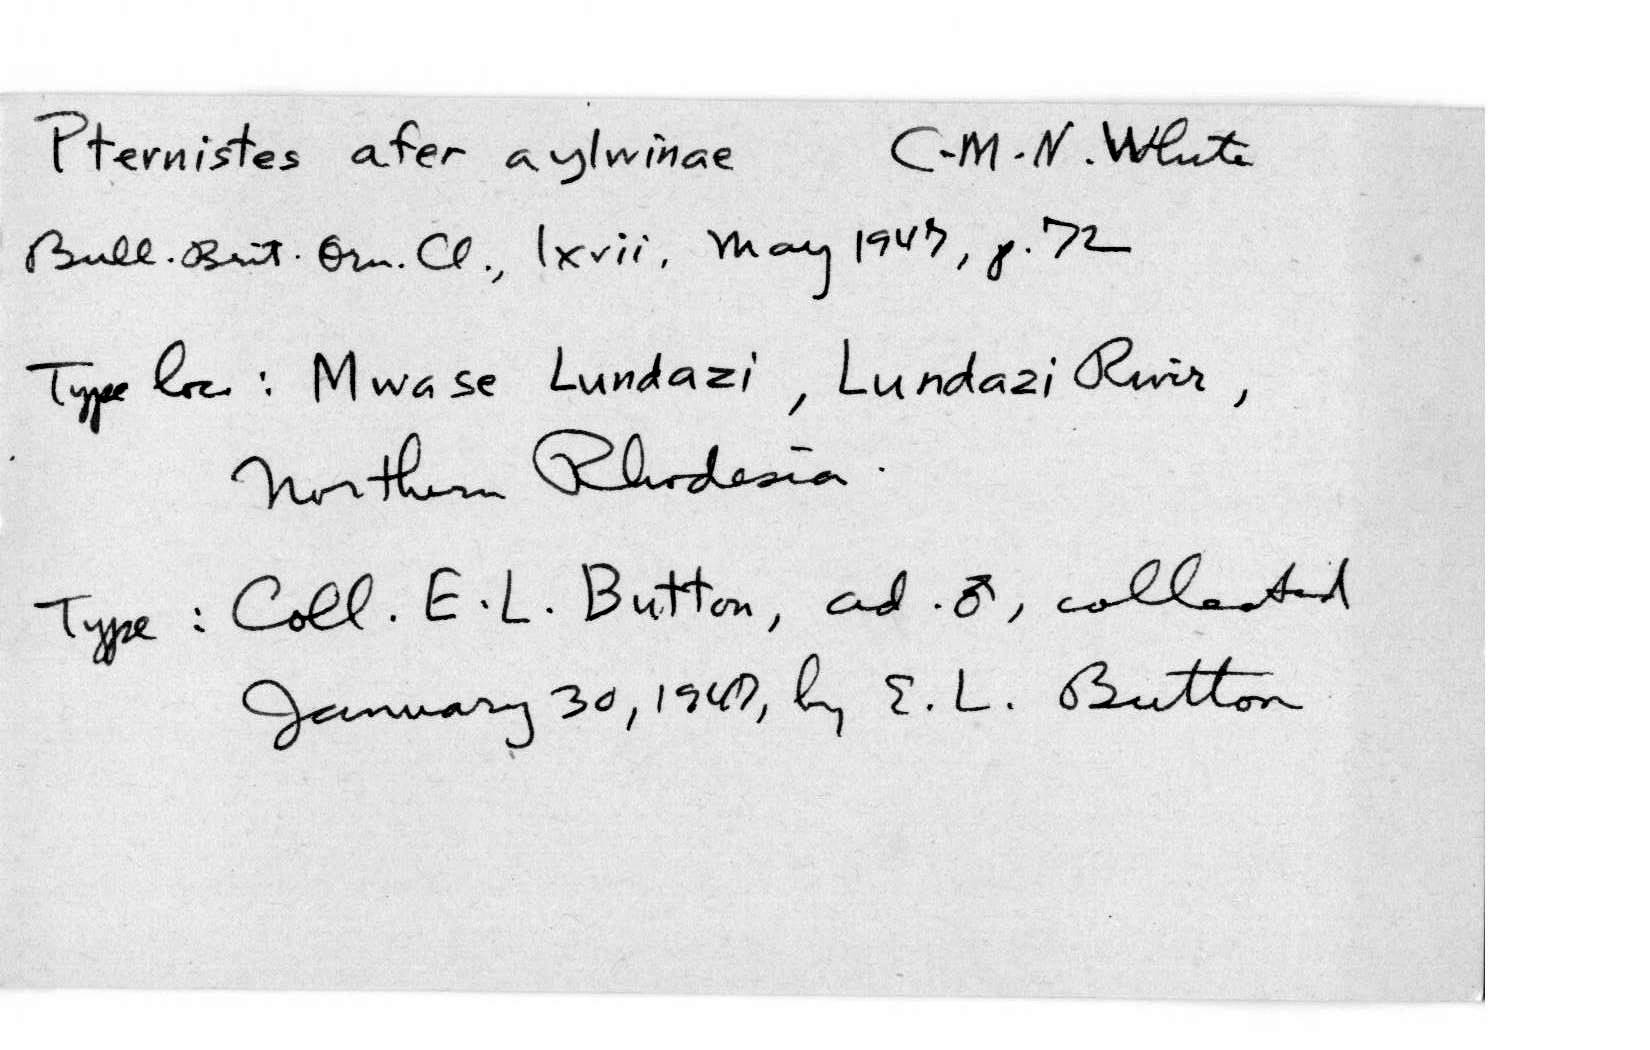 Pternistes afer aylwinae C.M.N. White
Bull. Brit. Orn. Cl., lxvii, May 1947, p. 72
Type loc. : Mwase Lundazi, Lundazi River,
Northern Rhodesia.
Type : Coll. E.L. Button, ad. ♂, collected
January 30, 1947, by E.L. Button